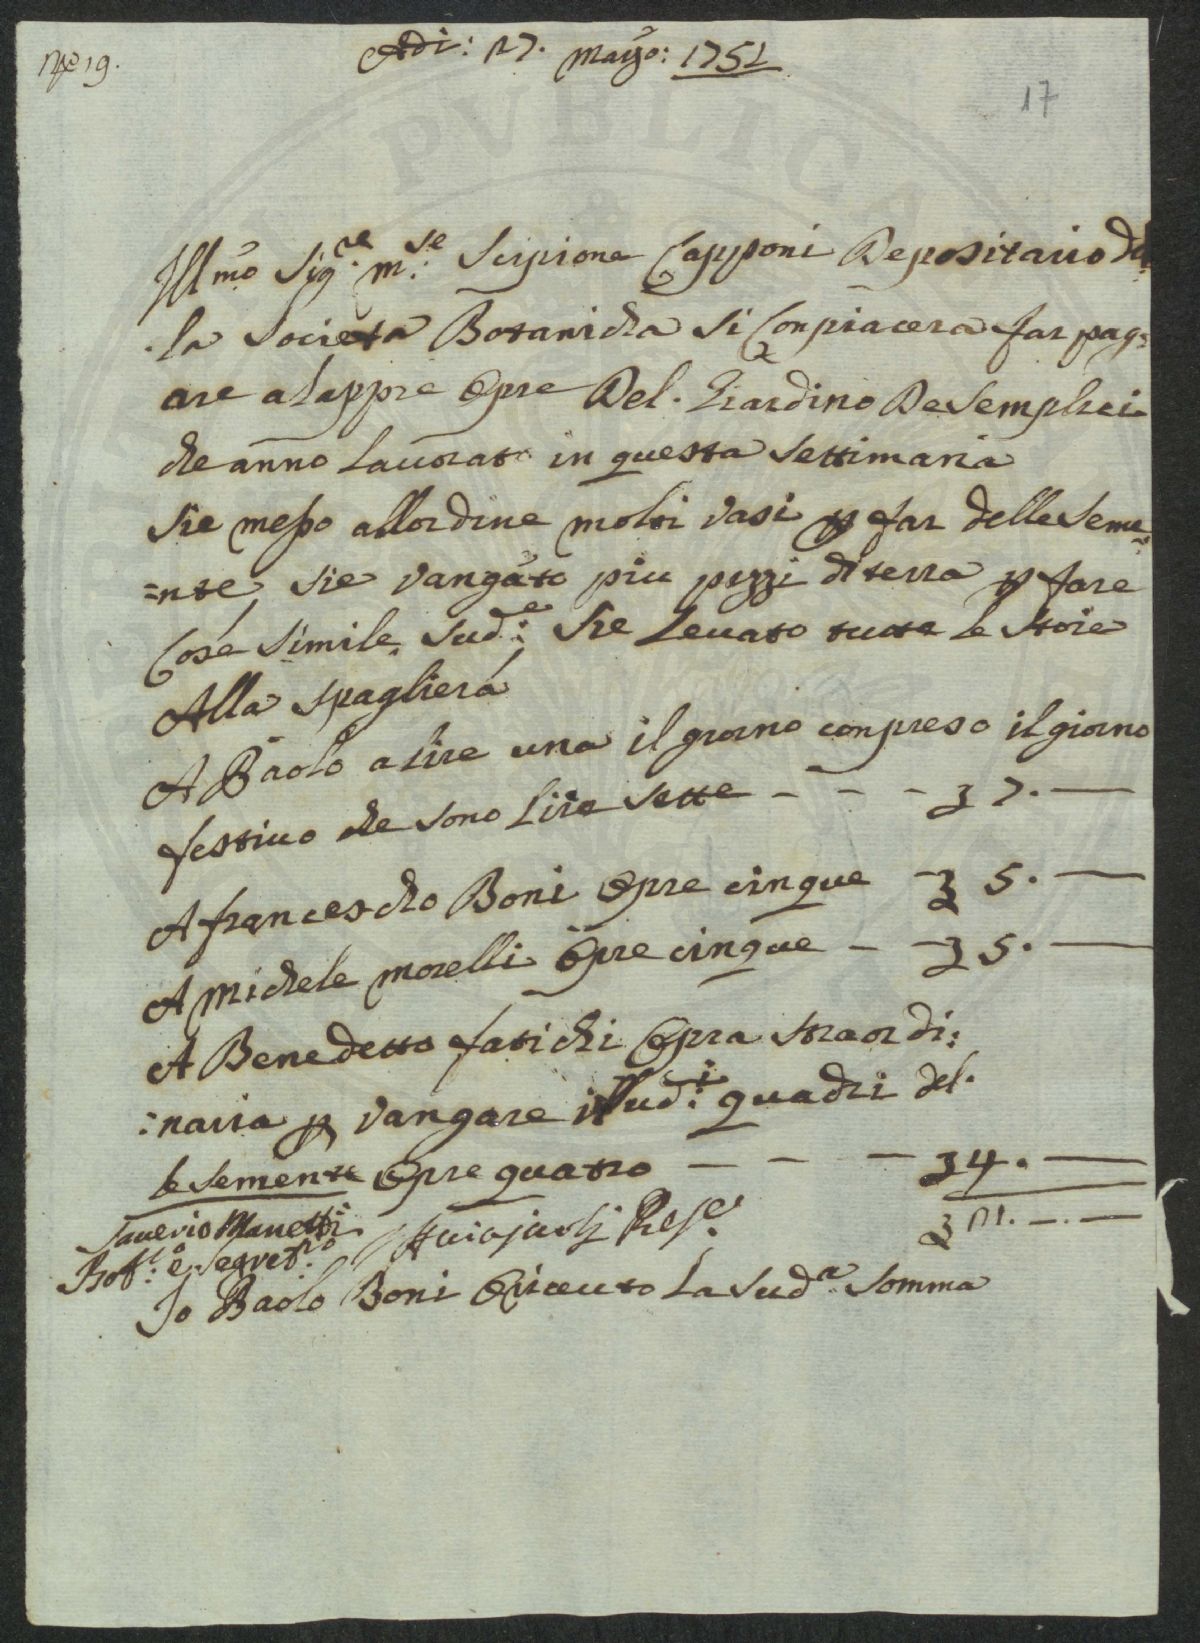 N.º 19.
Adi: 27. Marzo: 1751
17
Ill.mo Sig.re m.se Scipione Capponi Depositario del
la Societa Botanicha si Conpiacera far pag:
are a lappie Opre Del. Giardino De Semplici
che anno Lauorato in questa settimana
Sie messo allordine molti vasi p far delle Seme:
:nte, sie vangato piu pezzi di terra p fare
Cose Simile, Sud.e Sie Leuato tutte le Stoie
Alla spagliera
A Paolo a lire una il giorno conpreso il giorno
festiuo che sono lire sette - - - 7. —
A francescho Boni Opre cinque - 5. —
A Michele morelli Opre cinque - - 5. —
A Benedetto fatichi Opra straordi:
:naria p vangare i Sud.i quadri del.
le semente Opre quatro - - - 4. —
21. — . —
Sauerio Manetti
Bot.co e Segret.rio
Pres.e
Io Paolo Boni Oriceuto La Sud.a Somma
PVBLICA